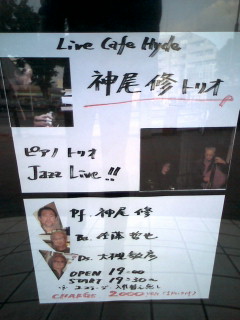 Live Cafe Hyde
神尾修トリオ
ピアノトリオ
Jazz Live!!
Pf. 神尾 修
Ba. 佐藤哲也
Ds. 大槻敏彦
OPEN 19:00
START 19:30~
CHARGE 2000